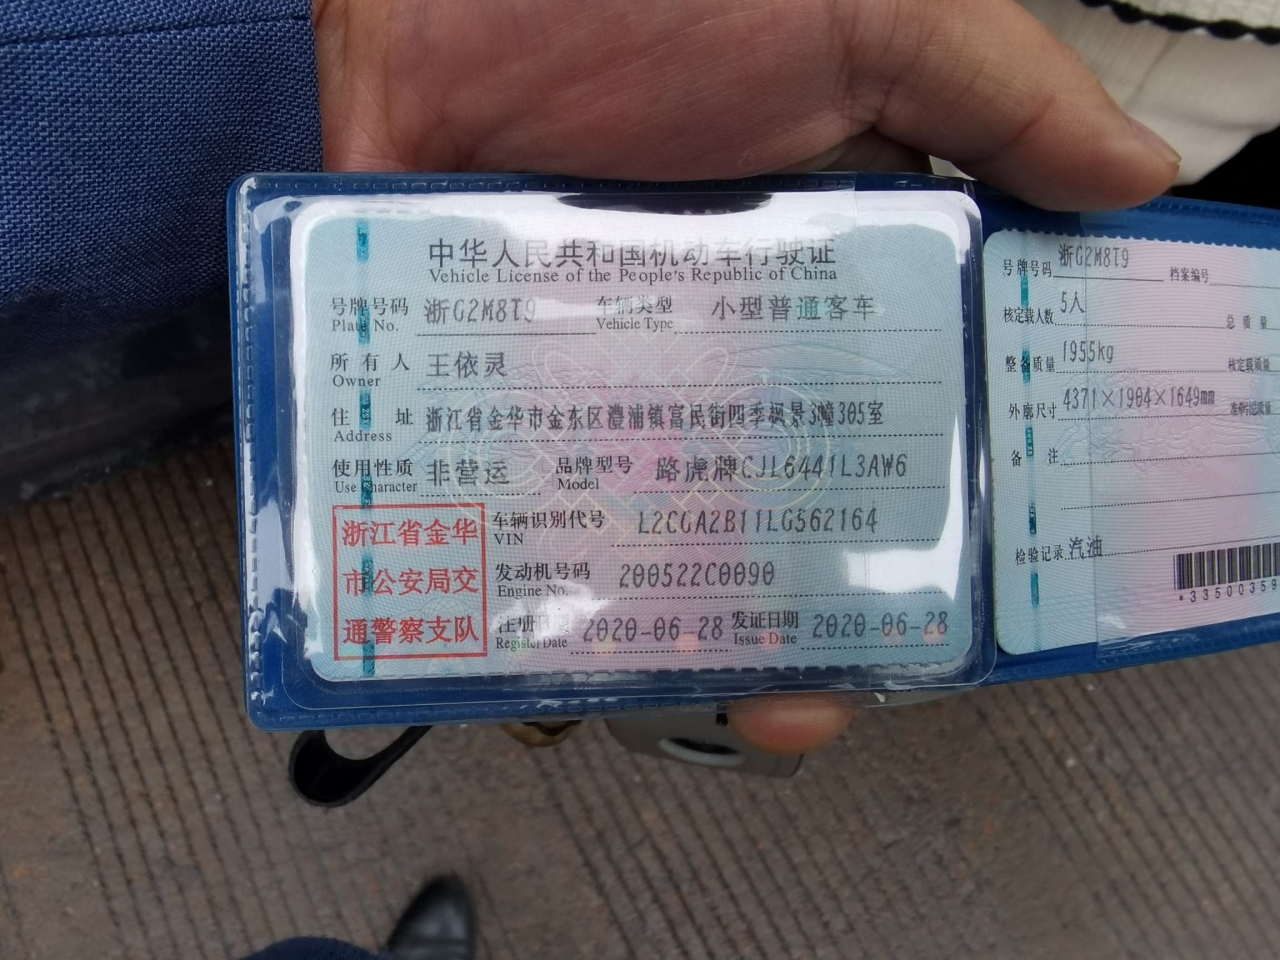 中华人民共和国机动车行驶证
Vehicle License of the People's Republic of China
号牌号码 浙G2M8T9 车辆类型 小型普通客车
Plate No. Vehicle Type
所有人 王依灵
Owner
住址 浙江省金华市金东区澧浦镇富民街四季枫景3幢305室
Address
使用性质 非营运 品牌型号 路虎牌CJL6441L3AW6
Use Character Model
浙江省金华
市公安局交
通警察支队
车辆识别代号 L2CGA2B11LG562164
VIN
发动机号码 200522C0090
Engine No.
注册日期 2020-06-28 发证日期 2020-06-28
Register Date Issue Date
号牌号码 浙G2M8T9 档案编号
核定载人数 5人 总质量
整备质量 1955kg 核定载质量
外廓尺寸 4371×1904×1649mm
备注
检验记录 汽油
*33500359